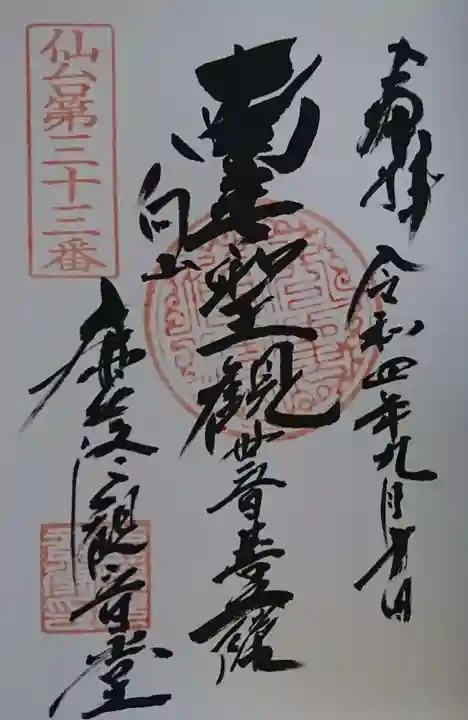 奉拝 令和四年九月
聖観世音菩薩
向山
鹿落観音堂
仙台第三十三番